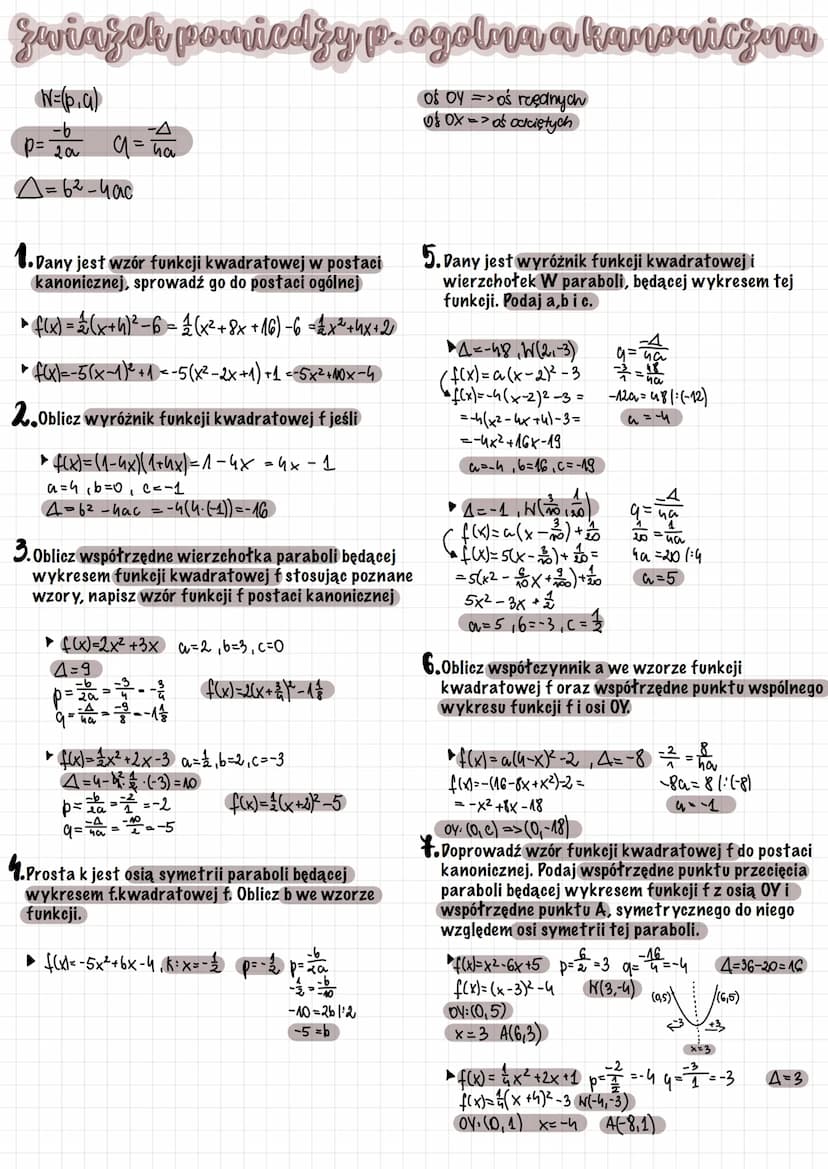 związek pomiędzy p. ogólną a kanoniczną
W=(p,q)
p= -b/2a q= -Δ/4a
Δ=b²-4ac
oś OY => oś rzędnych
oś OX => oś odciętych
1. Dany jest wzór funkcji kwadratowej w postaci
kanonicznej, sprowadź go do postaci ogólnej
▸ f(x)=1/2(x+4)²-6 = 1/2(x²+8x+16)-6 = 1/2x²+4x+2
▸ f(x)=-5(x-1)²+1=-5(x²-2x+1)+1=-5x²+10x-4
2. Oblicz wyróżnik funkcji kwadratowej f jeśli
▸ f(x)=(1-4x)(1+4x)=1-4x=4x-1
a=4, b=0, c=-1
Δ=b²-4ac = -4(4·(-1))=-16
3. Oblicz współrzędne wierzchołka paraboli będącej
wykresem funkcji kwadratowej f stosując poznane
wzory, napisz wzór funkcji f postaci kanonicznej
▸ f(x)=2x²+3x a=2, b=3, c=0
Δ=9
p= -b/2a = -3/4 = -3/4 f(x)=2(x+3/4)²-1 1/8
q= -Δ/4a = -9/8 = -1 1/8
▸ f(x)=1/2x²+2x-3 a=1/2, b=2, c=-3
Δ=4-4·1/2·(-3)=10
p= -b/2a = -2/1 = -2 f(x)=1/2(x+2)²-5
q= -Δ/4a = -10/2 = -5
4. Prosta k jest osią symetrii paraboli będącej
wykresem f.kwadratowej f. Oblicz b we wzorze
funkcji.
▸ f(x)=-5x²+bx-4, k: x=-1/2 p=-1/2 p= -b/2a
-1/2 = -b/-10
-10=2b |:2
-5=b
5. Dany jest wyróżnik funkcji kwadratowej i
wierzchołek W paraboli, będącej wykresem tej
funkcji. Podaj a,b i c.
▸ Δ=-48, W(2,-3) q= -Δ/4a
f(x)=a(x-2)²-3 -3/1 = 48/4a
f(x)=-4(x-2)²-3= -12a=48 |:(-12)
=-4(x²-4x+4)-3= a=-4
=-4x²+16x-19
a=-4, b=16, c=-19
▸ Δ=-1, W(3/10, 1/20) q= -Δ/4a
f(x)=a(x-3/10)+1/20 1/20 = 1/4a
f(x)=5(x-3/10)+1/20= 4a=20 |:4
=5(x²-6/10x+9/100)+1/20 a=5
5x²-3x+1/2
a=5, b=-3, c=1/2
6. Oblicz współczynnik a we wzorze funkcji
kwadratowej f oraz współrzędne punktu wspólnego
wykresu funkcji f i osi OY.
▸ f(x)=a(4-x)²-2, Δ=-8 -2/1 = 8/4a
f(x)=-(16-8x+x²)-2= -8a=8 |:(-8)
=-x²+8x-18 a=-1
OY: (0,c)=>(0,-18)
7. Doprowadź wzór funkcji kwadratowej f do postaci
kanonicznej. Podaj współrzędne punktu przecięcia
paraboli będącej wykresem funkcji f z osią OY i
współrzędne punktu A, symetrycznego do niego
względem osi symetrii tej paraboli.
▸ f(x)=x²-6x+5 p=6/2=3 q= -16/4=-4 Δ=36-20=16
f(x)=(x-3)²-4 W(3,-4) (0,5) (6,5)
OY:(0,5) ←3 +3→
x=3 A(6,3) x=3
▸ f(x)=1/4x²+2x+1 p= -2/(1/2) =-4 q= -3/1=-3 Δ=3
f(x)=1/4(x+4)²-3 W(-4,-3)
OY:(0,1) x=-4 A(-8,1)